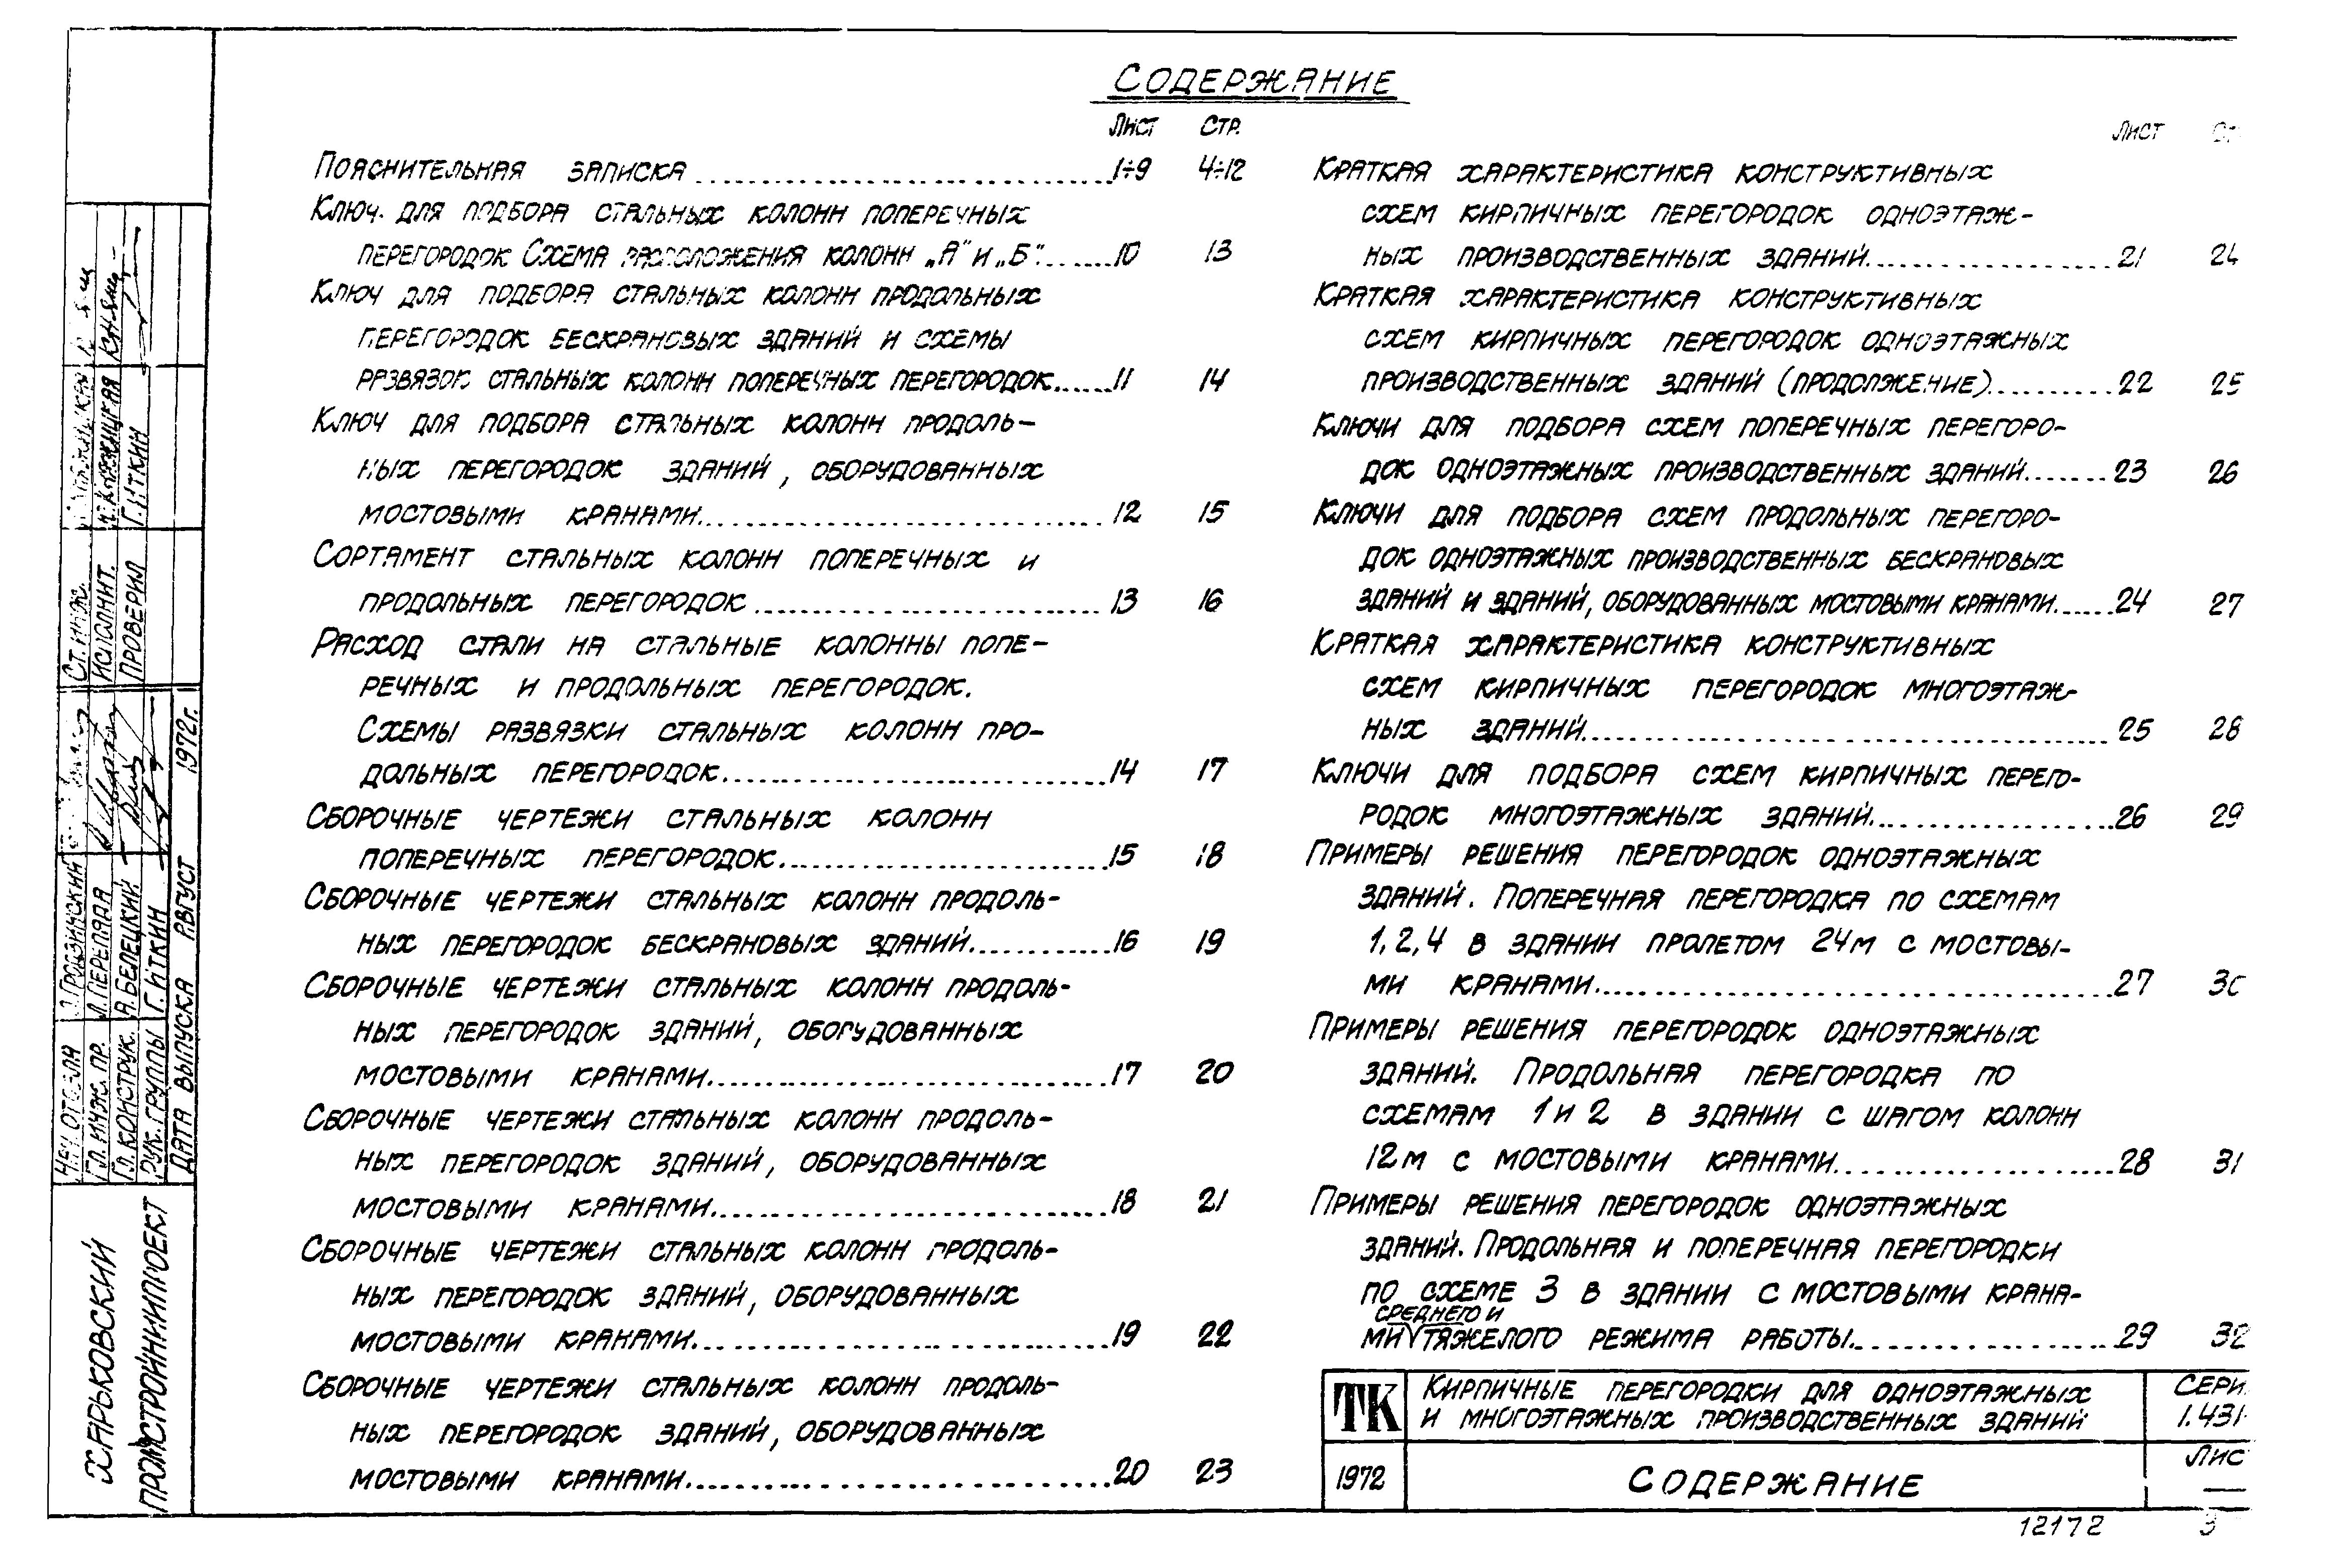 Содержание
Лист Стр.
Пояснительная записка 1÷9 4÷12
Ключ для подбора стальных колонн поперечных
перегородок Схема расположения колонн „А" и „Б". 10 13
Ключ для подбора стальных колонн продольных
перегородок бескрановых зданий и схемы
развязок стальных колонн поперечных перегородок 11 14
Ключ для подбора стальных колонн продоль-
ных перегородок зданий, оборудованных
мостовыми кранами 12 15
Сортамент стальных колонн поперечных и
продольных перегородок 13 16
Расход стали на стальные колонны попе-
речных и продольных перегородок.
Схемы развязки стальных колонн про-
дольных перегородок 14 17
Сборочные чертежи стальных колонн
поперечных перегородок 15 18
Сборочные чертежи стальных колонн продоль-
ных перегородок бескрановых зданий 16 19
Сборочные чертежи стальных колонн продоль-
ных перегородок зданий, оборудованных
мостовыми кранами 17 20
Сборочные чертежи стальных колонн продоль-
ных перегородок зданий, оборудованных
мостовыми кранами 18 21
Сборочные чертежи стальных колонн продоль-
ных перегородок зданий, оборудованных
мостовыми кранами 19 22
Сборочные чертежи стальных колонн продоль-
ных перегородок зданий, оборудованных
мостовыми кранами 20 23
Лист
Краткая характеристика конструктивных
схем кирпичных перегородок одноэтаж-
ных производственных зданий 21 24
Краткая характеристика конструктивных
схем кирпичных перегородок одноэтажных
производственных зданий (продолжение) 22 25
Ключи для подбора схем поперечных перегоро-
док одноэтажных производственных зданий 23 26
Ключи для подбора схем продольных перегоро-
док одноэтажных производственных бескрановых
зданий и зданий, оборудованных мостовыми кранами 24 27
Краткая характеристика конструктивных
схем кирпичных перегородок многоэтаж-
ных зданий 25 28
Ключи для подбора схем кирпичных перего-
родок многоэтажных зданий 26 29
Примеры решения перегородок одноэтажных
зданий. Поперечная перегородка по схемам
1, 2, 4 в здании пролетом 24м с мостовы-
ми кранами 27 30
Примеры решения перегородок одноэтажных
зданий. Продольная перегородка по
схемам 1 и 2 в здании с шагом колонн
12м с мостовыми кранами 28 31
Примеры решения перегородок одноэтажных
зданий. Продольная и поперечная перегородки
по схеме 3 в здании с мостовыми крана-
среднего и
ми тяжелого режима работы 29 32
ТК Кирпичные перегородки для одноэтажных
и многоэтажных производственных зданий
Сери
1.431-
1972 Содержание
Лис
—
12172 3
Харьковский
Промстройниипроект
Нач. отдела
Гл. инж. пр. Л. Перепада
Гл. конструк. А. Белецкий
Рук. группы Г. Иткин
Дата выпуска Август 1972г.
Ст. инж.
Исполнит.
Проверил Г. Иткин